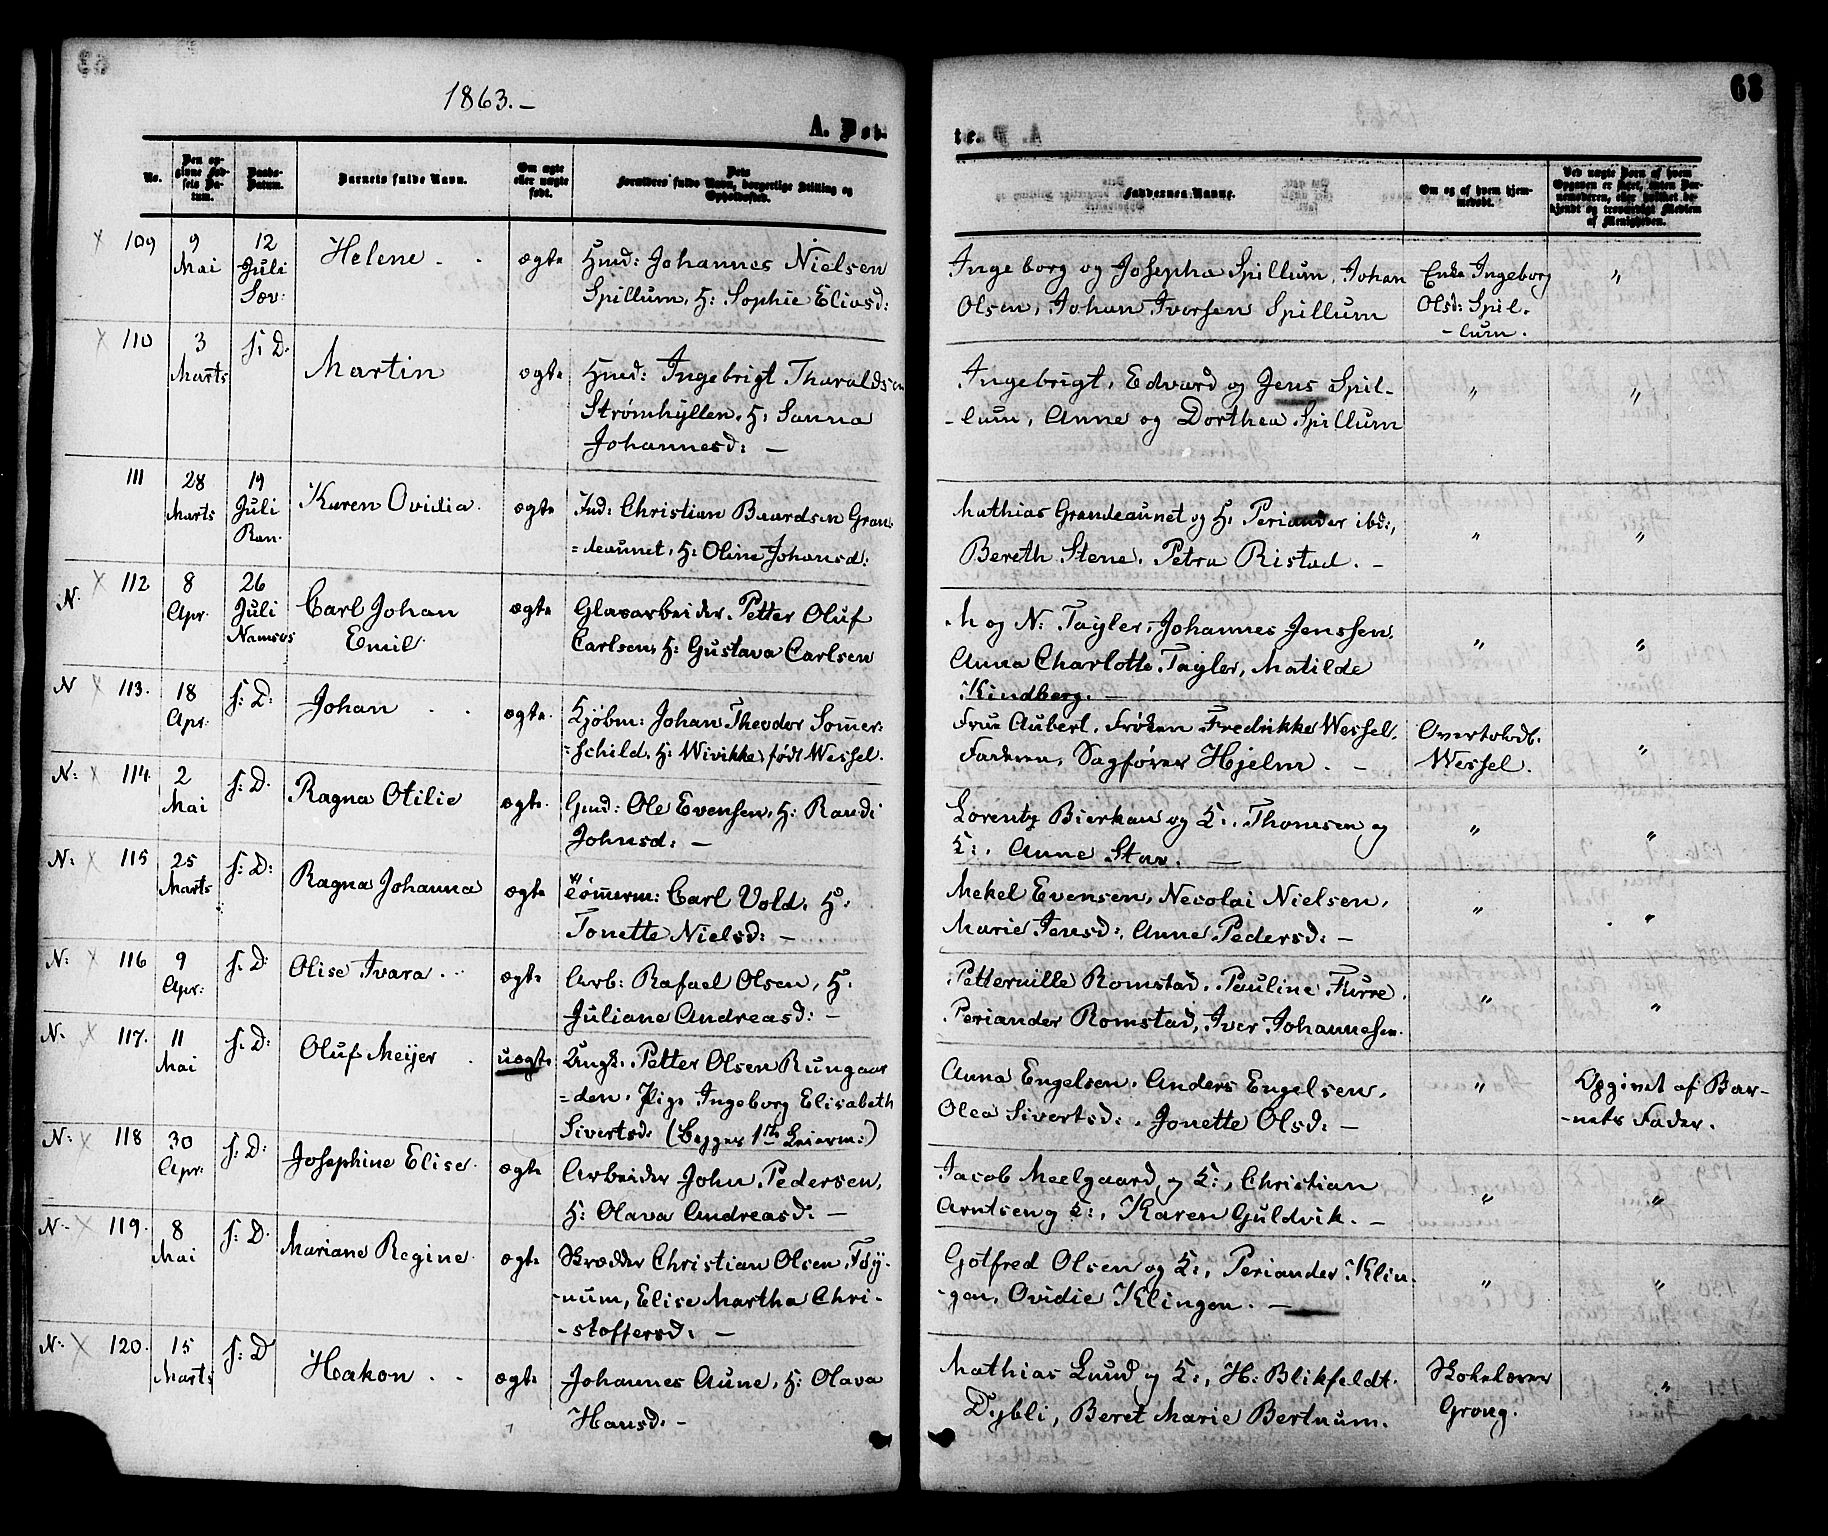 63
1863.-
A. Døb-
te.
No.
Den opgivne Fødsels Datum.
Daabs-Datum.
Barnets fulde Navn.
Om ægte eller uægte født.
Dets Forældres fulde Navn, borgerlige Stilling og Opholdssted.
Faddernes Navne.
Om og af hvem hjemmedøbt.
109 9 Mai 12 Juli Sæv: Helene ægte
Hmd: Johannes Nielsen
Spillum, H: Sophie Eliasd:
Ingeborg og Josepha Spillum, Johan
Olsen, Johan Iversen Spillum
Enke Ingeborg
Olsd: Spil-
-lum.
"
110 3 Marts s: D. Martin ægte
Hmd: Ingebrigt Tharaldsen
Strømhyllen, H: Sanna
Johannesd: -
Ingebrigt, Edvard og Jens Spil-
-lum, Anne og Dorthea Spillum
" "
111 28 Marts 19 Juli Ran. Karen Ovidia. ægte
Ind: Christian Baardsen Gran-
=deaunet, H: Oline Johansd:
Mathias Grandeaunet og H: Periander ibd:,
Bereth Stene, Petra Ristad. -
" "
N. 112 8 Apr. 26 Juli Namsos Carl Johan
Emil. ægte
Glasarbeider Petter Oluf
Carlsen, H: Gustava Carlsen
M og N: Tayler, Johannes Jenssen,
Anna Charlotte Tayler, Matilde
Kindberg. -
" "
N 113. 18 Apr. s: D: Johan ægte.
Kjøbm: Johan Theodor Sommer-
=schild, H: Wivikke født Wessel.
Frue Aubert, Frøken Fredrikke Wessel,
Faderen, Sagfører Hjelm. -
Overtoldb.
Wessel.
"
N: 114. 2 Mai s: D. Ragna Otilie ægte.
Gmd: Ole Evensen, H: Randi
Johnsd: -
Lorentz Bierkan og K:, Thomsen og
K:, Anne Stav. -
" "
N: 115 25 Marts s: D: Ragna Johanna ægte
Tømmerm: Carl Vold, H:
Tonette Nielsd: -
Mekel Evensen, Necolai Nielsen,
Marie Jensd:, Anne Pedersd: -
" "
N: 116 9 Apr: s. D: Olise Ivara. ægte
Arb: Rafael Olsen, H:
Juliane Andreasd: -
Petternille Romstad, Pauline Furre,
Periander Romstad, Iver Johannesen.
" "
N. 117. 11 Mai s. D: Oluf Meijer uægte
Ungk. Petter Olsen Rungaar
=den, Pige Ingeborg Elisabeth
Sivertsd: (begges 1ste Leierm:)
Anna Engelsen, Anders Engelsen,
Olea Sivertsd:, Jonette Olsd: -
"
Opgivet af Bar-
-nets Fader.
N: 118 30 Apr: s: D: Josephine Elise. ægte
Arbeider John Pedersen,
H: Olava Andreasd: -
Jacob Meelgaard og K:, Christian
Arntsen og K:, Karen Guldvik. -
" "
N- 119. 8 Mai s: D. Mariane Regine ægte
Skrædder Christian Olsen Foy-
-num, Elise Martha Chri-
-stoffersd: -
Gotfred Olsen og K:, Periander Klin-
-gen, Ovidie Klingen. -
" "
N: 120. 15 Marts s: D Hakon ægte
Johannes Aune, H: Olava
Hansd: -
Mathias Lund og K:, H: Blikfeldt.
Dybli, Beret Marie Bertnum.
Skolelærer
Grong.
"